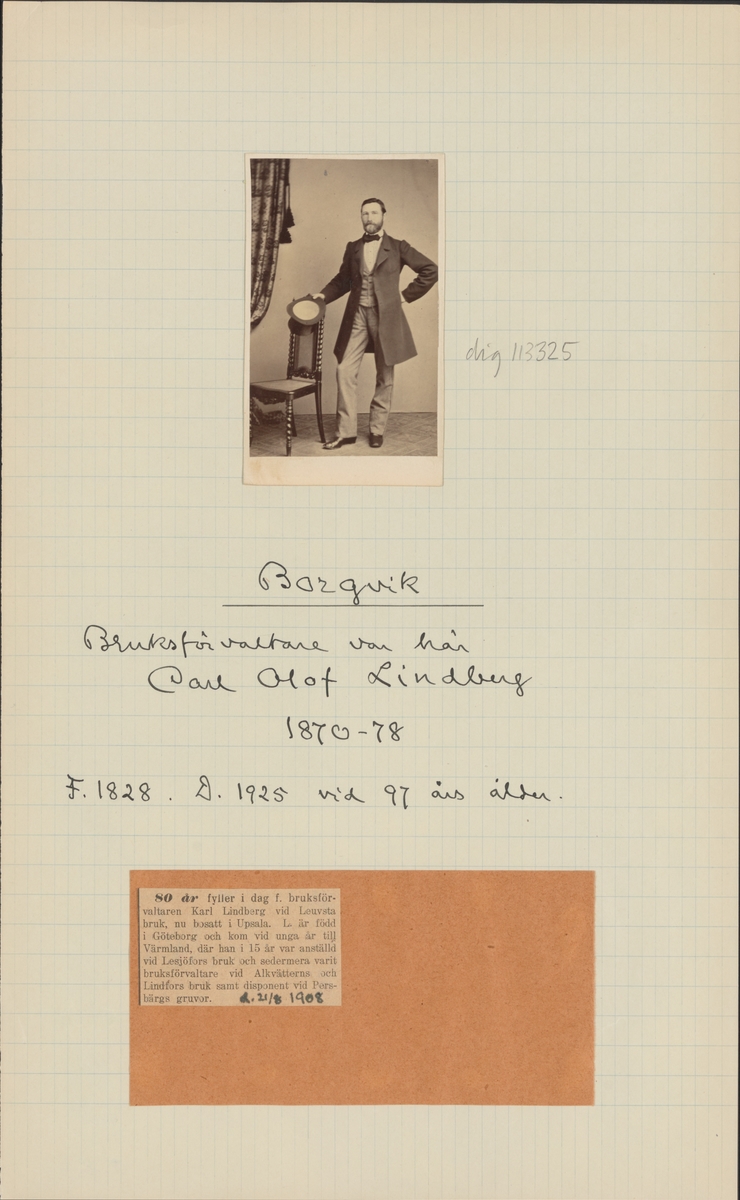 dig 113325
Borgvik
Bruksförvaltare var här
Carl Olof Lindberg
1870-78
F. 1828. D. 1925 vid 97 års ålder.
80 år fyller i dag f. bruksför-
valtaren Karl Lindberg vid Leuvsta
bruk, nu bosatt i Upsala. L. är född
i Göteborg och kom vid unga år till
Värmland, där han i 15 år var anställd
vid Lesjöfors bruk och sedermera varit
bruksförvaltare vid Alkvätterns och
Lindfors bruk samt disponent vid Pers-
bärgs gruvor. d. 21/8 1908